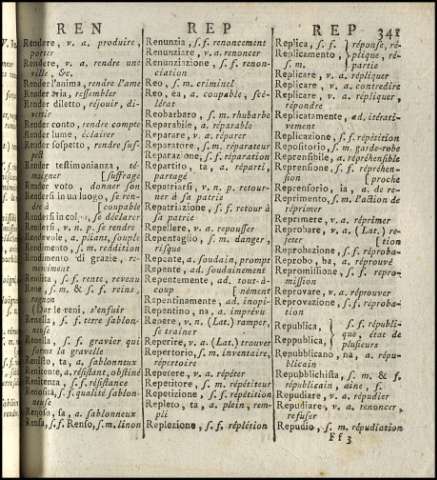 REN REP REP 341
Rendere, v. a. produire,
porter
Rendere, v. a. rendre une
ville, &c.
Render l'anima, rendre l'ame
Render aria, ressembler
Render diletto, réjouir, di-
vertir
Render conto, rendre compte
Render lume, éclairer
Render sospetto, rendre sus-
pect
Render testimonianza, té-
moigner [suffrage
Render voto, donner son
Rendersi in un luogo, se ren-
dre à [coupable
Rendersi in colpa, se déclarer
Rendersi, v. n. p. se rendre
Rendevole, a. pliant, souple
Rendimento, s. m. reddition
Rendimento di grazie, re-
merciment
Renella, s. f. terre sablon-
neuse
Renella, s. f. gravier qui
forme la gravelle
Renitente, a. résistant, obstiné
Renitenza, s. f. résistance
Renosità, s. f. qualité sablon-
neuse
Renoso, sa, a. sablonneux
Rensa, s. f. Renso, s. m. linon
Renunzia, s. f. renoncement
Renunziare, v. a. renoncer
Renunziazione, s. f. renon-
ciation
Reo, s. m. criminel
Reo, ea, a. coupable, scé-
lérat
Reobarbaro, s. m. rhubarbe
Reparabile, a. réparable
Reparare, v. a. réparer
Reparatore, s. m. réparateur
Reparazione, s. f. réparation
Repartito, ta, a. réparti,
partagé
Repatriarsi, v. n. p. retour-
ner à sa patrie
Repatriazione, s. f. retour à
sa patrie
Repellere, v. a. repousser
Repentaglio, s. m. danger,
risque
Repente, a. soudain, prompt
Repente, ad. soudainement
Repentemente, ad. tout-à-
coup [nément
Repentinamente, ad. inopi-
Repentino, na, a. imprévu
Repere, v. n. (Lat.) ramper,
se trainer
Reperire, v. a. (Lat.) trouver
Repertorio, s. m. inventaire,
répertoire
Repetere, v. a. répéter
Repetitore, s. m. répétiteur
Repetizione, s. f. répétition
Repleto, ta, a. plein, rem-
pli
Replezione, s. f. réplétion
Replica, s. f. } réponse, ré-
Replicamento, } plique, ré-
s. m. } partie
Replicare, v. a. répliquer
Replicare, v. a. contredire
Replicare, v. a. répliquer,
répondre
Replicatamente, ad. itérati-
vement
Replicazione, s. f. répétition
Repositorio, s. m. garde-robe
Reprensibile, a. répréhensible
Reprensione, s. f. répréhen-
sion [proche
Reprensorio, ia, a. de re-
Reprimento, s. m. l'action de
réprimer
Reprimere, v. a. réprimer
Reprobare, v. a. (Lat.) re-
jeter [tion
Reprobazione, s. f. réproba-
Reprobo, ba, a. réprouvé
Repromissione, s. f. repro-
mission
Reprovare, v. a. réprouver
Reprovazione, s. f. réproba-
tion
Republica, } s. f. républi-
Reppublica, } que, état de
plusieurs
Repubblicano, na, a. répu-
blicain
Repubblichista, s. m. & f.
républicain, aine, s.
Repudiare, v. a. répudier
Repudiare, v. a. renoncer,
refuser
Repudio, s. m. répudiation
Ff 3